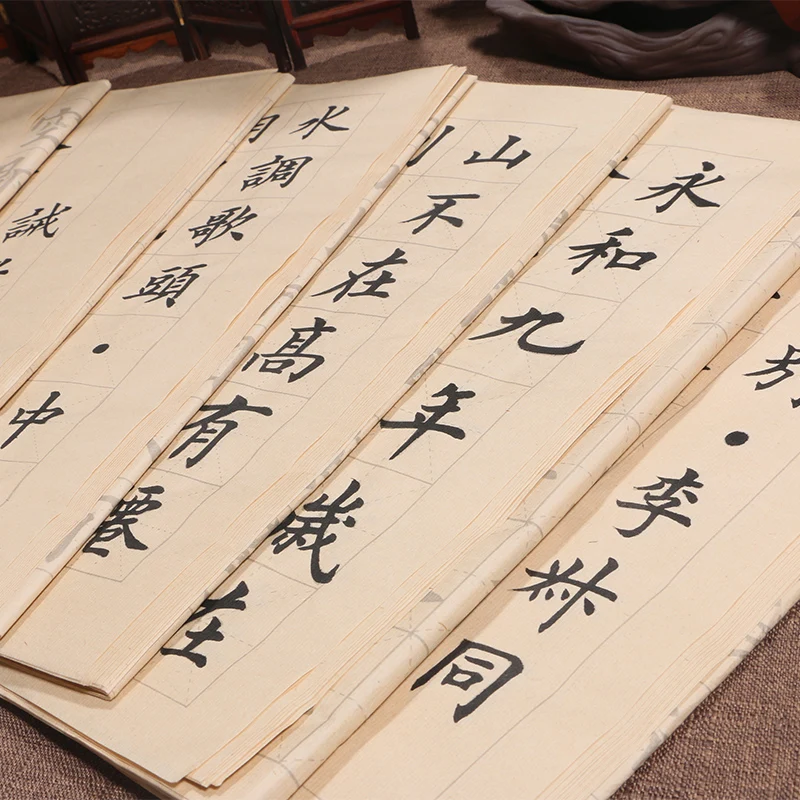 别·李叔同
永和九年歲在
山不在高有僊
水調歌頭·中
誡